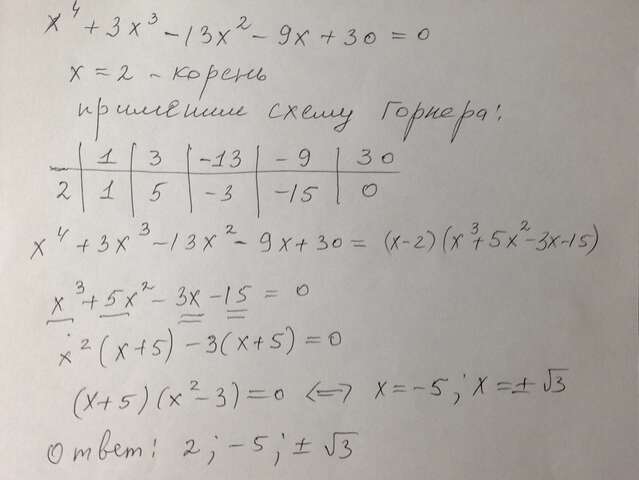 x⁴ + 3x³ − 13x² − 9x + 30 = 0
x = 2 - корень
применим схему Горнера:
1 3 −13 −9 30
2 1 5 −3 −15 0
x⁴ + 3x³ − 13x² − 9x + 30 = (x−2)(x³+5x²−3x−15)
x³ + 5x² − 3x − 15 = 0
x²(x+5) − 3(x+5) = 0
(x+5)(x²−3) = 0 ⟺ x = −5; x = ±√3
Ответ: 2; −5; ±√3